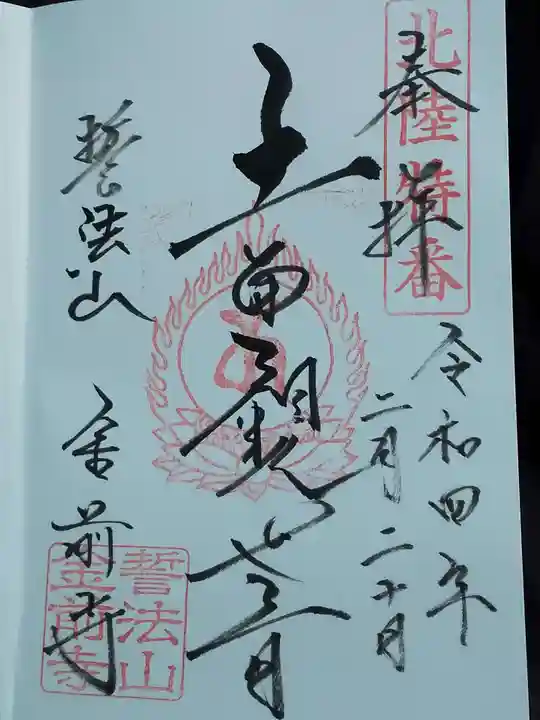 北陸特番
奉拝
令和四年
二月二十日
十一面観世音
誓法山
金前寺
誓法山
金前寺